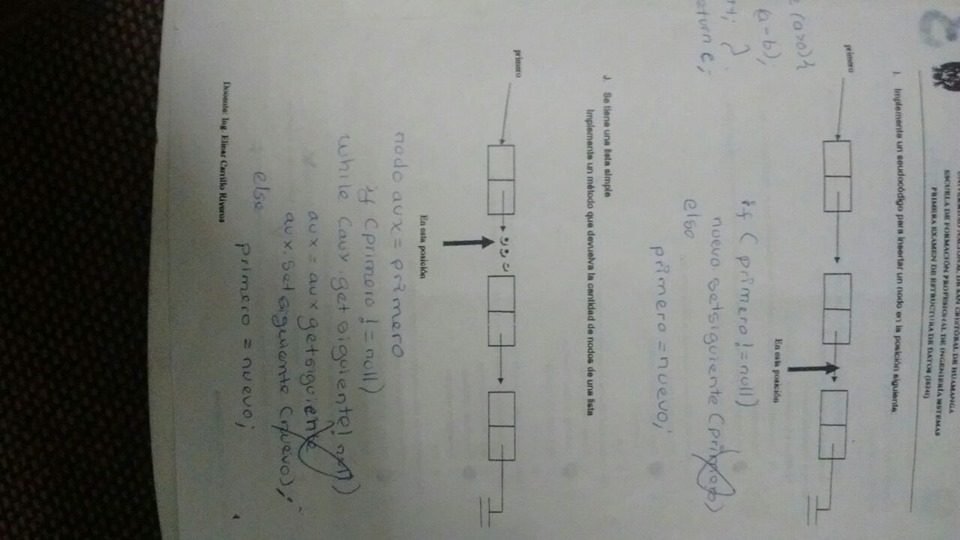 DE SAN CRISTÓBAL DE HUAMANGA
ESCUELA DE FORMACIÓN PROFESIONAL DE INGENIERÍA SISTEMAS
PRIMERA EXAMEN DE ESTRUCTURA DE DATOS (IS241)
I. Implemente un seudocódigo para insertar un nodo en la posición siguiente.
primero
En esta posición
(a>0){
(a-b),
}
c;
if ( primero != null)
nuevo. setsiguiente (primero)
else
primero = nuevo;
J. Se tiene una lista simple
Implemente un método que devuelva la cantidad de nodos de una lista
primero
En esta posición
nodo aux = primero
if (primero != null)
while (aux.getsiguiente! null)
aux = aux getsiguiente
aux. Setsiguiente (nuevo);
else
primero = nuevo;
4
Docente: Ing. Elinar Carrillo Riveros